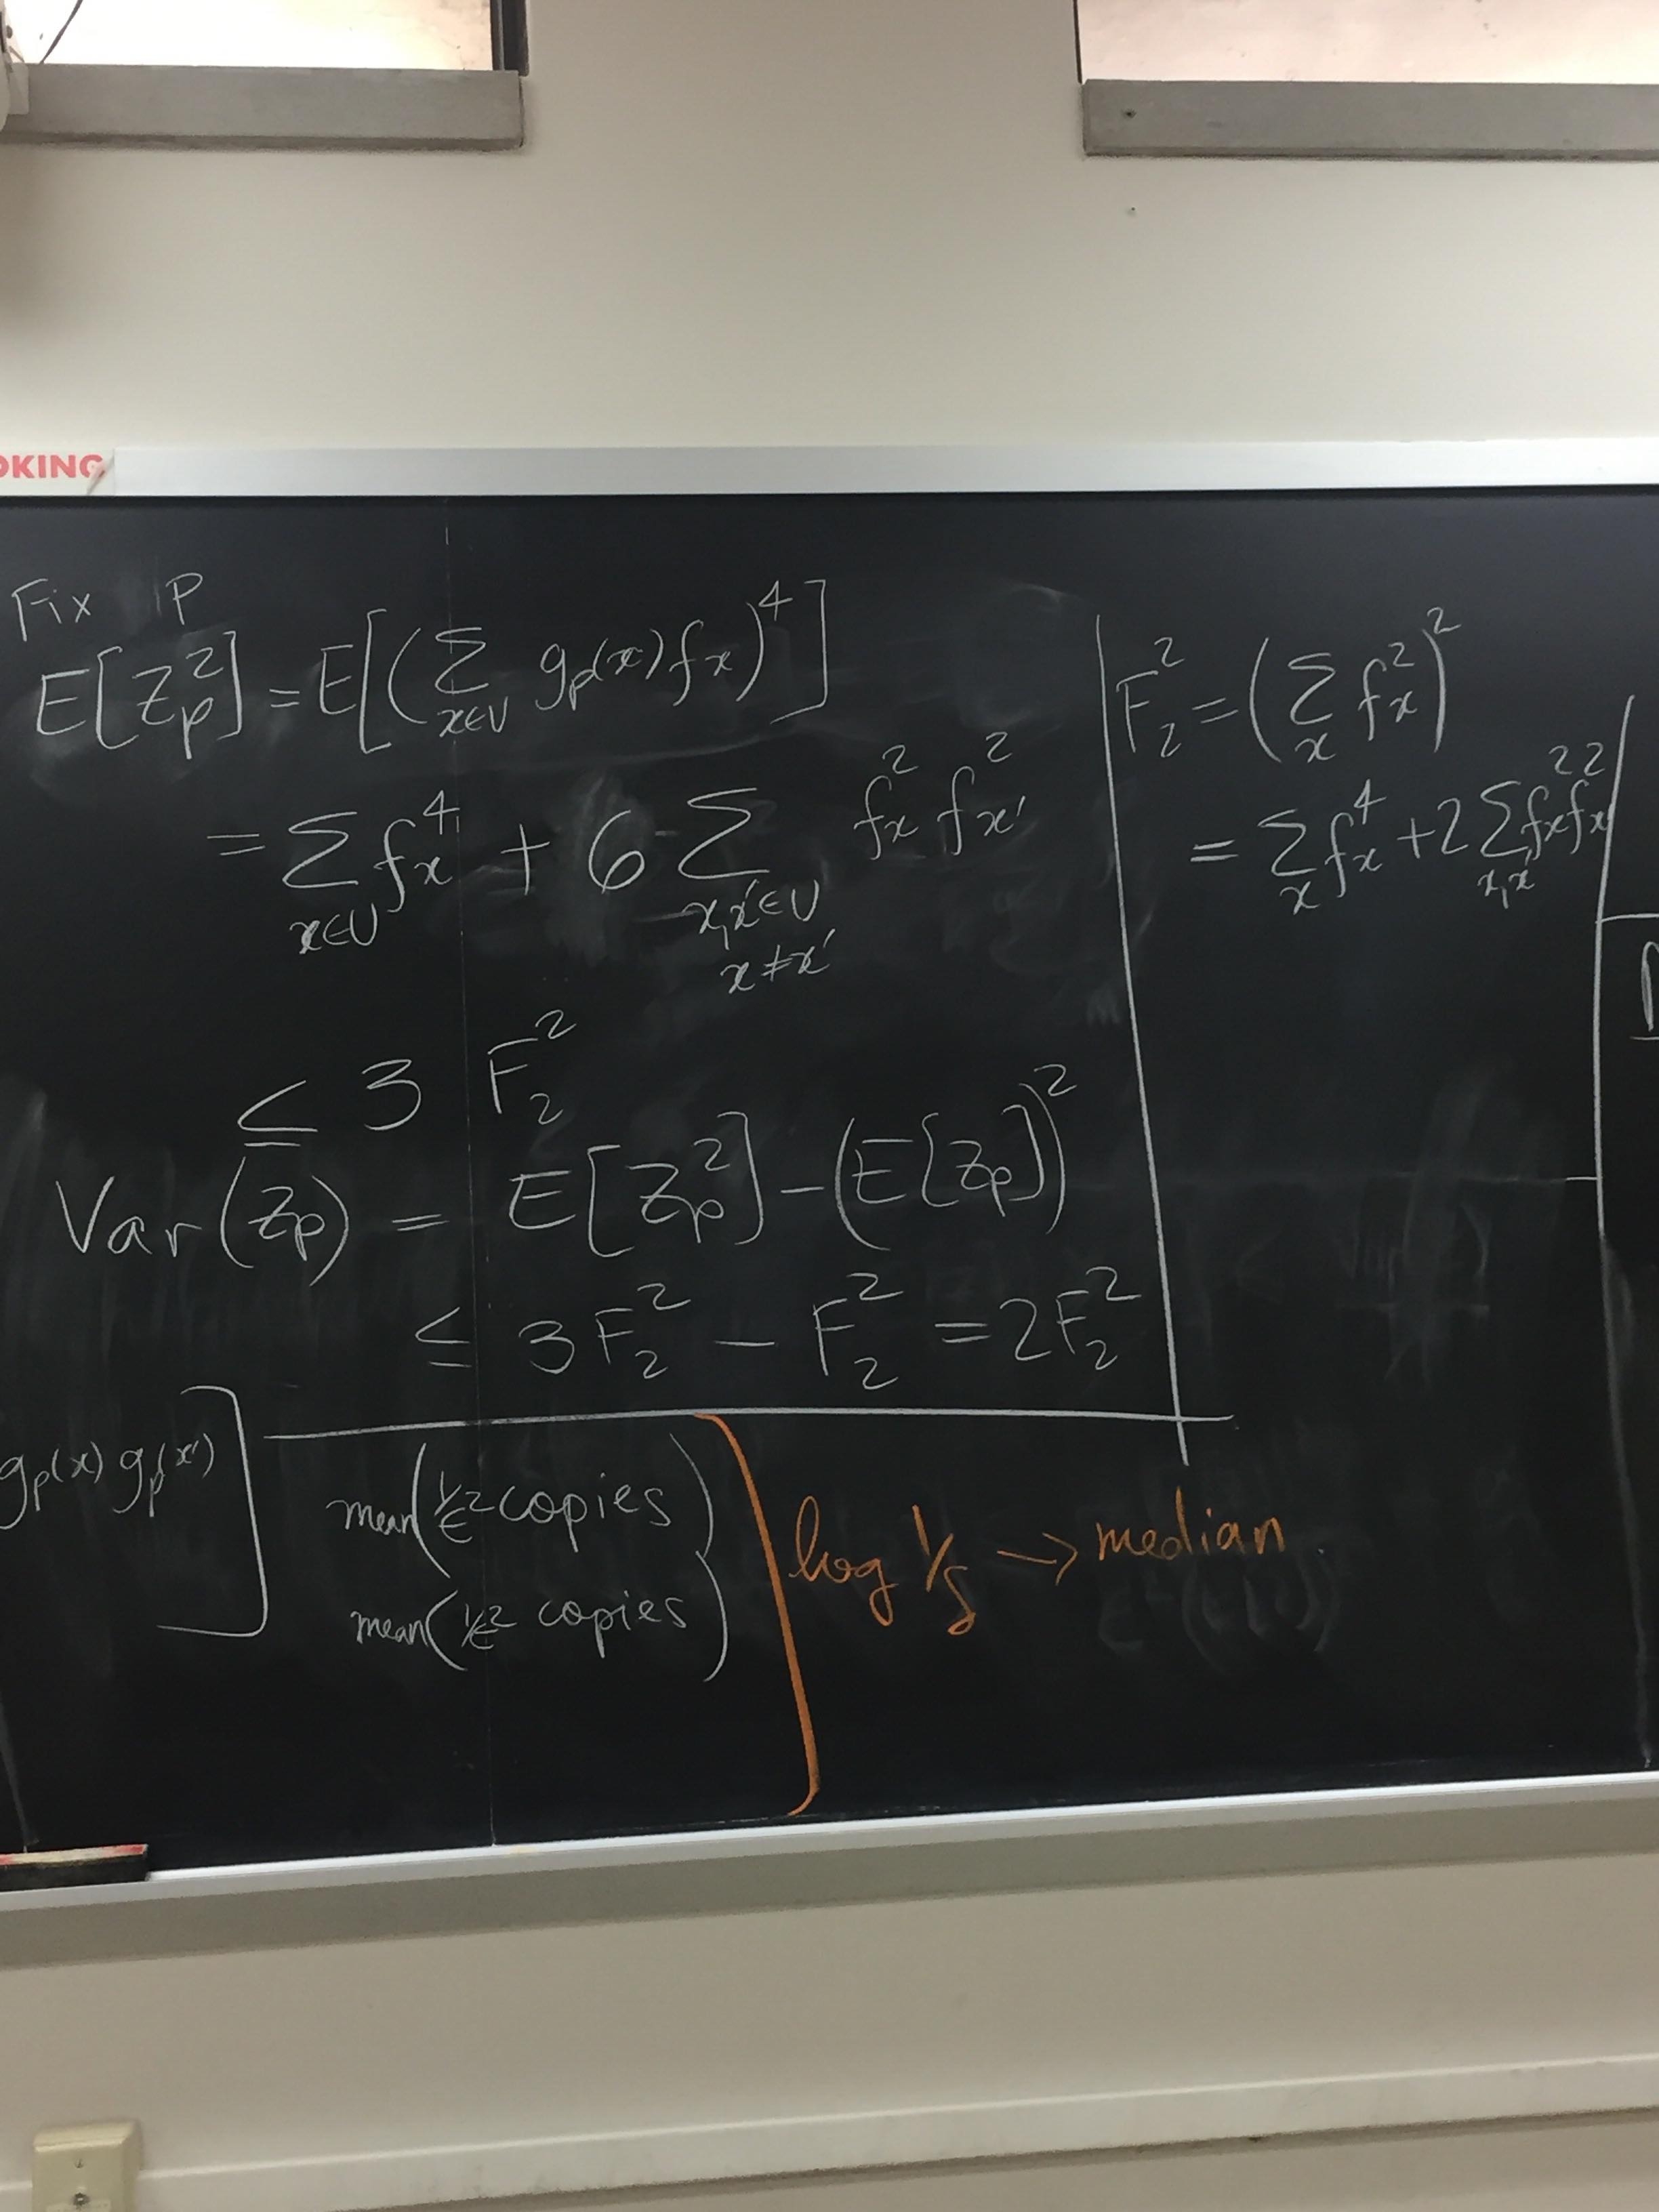 OKING
Fix P
E[Z_p^2] = E[(∑_{x∈U} g_p(x) f_x)^4]
= ∑_{x∈U} f_x^4 + 6 ∑_{x,x'∈U x≠x'} f_x^2 f_x'^2
≤ 3 F_2^2
Var(Z_p) = E[Z_p^2] - (E[Z_p])^2
≤ 3F_2^2 - F_2^2 = 2F_2^2
F_2^2 = (∑_x f_x^2)^2
= ∑_x f_x^4 + 2 ∑_{x,x'} f_x^2 f_x'^2
g_p(x) g_p(x')]
mean(1/ϵ^2 copies)
mean(1/ϵ^2 copies)
log 1/δ → median